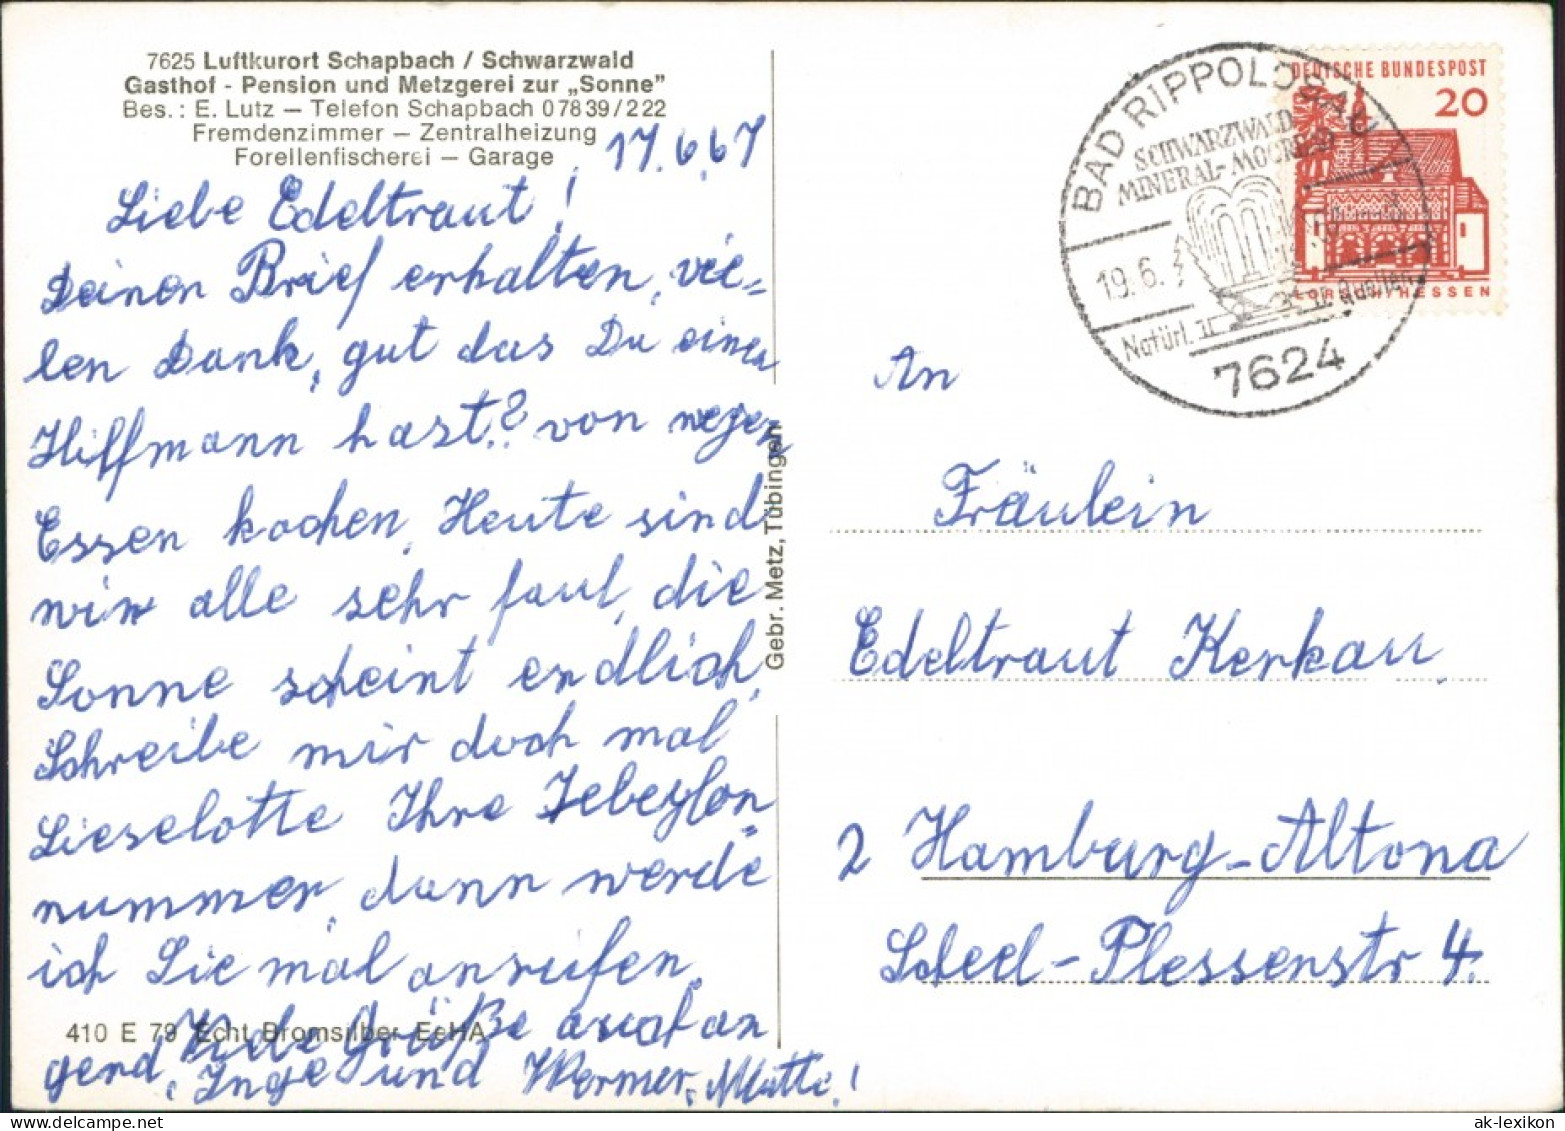 7625 Luftkurort Schapbach / Schwarzwald
Gasthof - Pension und Metzgerei zur „Sonne”
Bes.: E. Lutz — Telefon Schapbach 07839/222
Fremdenzimmer — Zentralheizung
Forellenfischerei — Garage
17.6.67
Liebe Edeltraut!
Deinen Brief erhalten, vie=
len Dank, gut das Du einen
Hilfmann hast? von wegen
Essen kochen, Heute sind
wir alle sehr faul, die
Sonne scheint endlich,
Schreibe mir doch mal
Lieselotte Ihre Telefon=
nummer, dann werde
ich Sie mal anrufen,
Liebe Grüße auch an
gend, Inge und Werner, Mutti!
410 E 79 Echt Bromsilber EsHA
Gebr. Metz, Tübingen
BAD RIPPOLDSAU
SCHWARZWALD
MINERAL-MOORBAD
19.6.
Natürl.
7624
DEUTSCHE BUNDESPOST
20
LORSCH/HESSEN
An
Fräulein
Edeltraut Kerkau,
2 Hamburg-Altona
Scheel-Plessenstr 4.
ak-lexikon